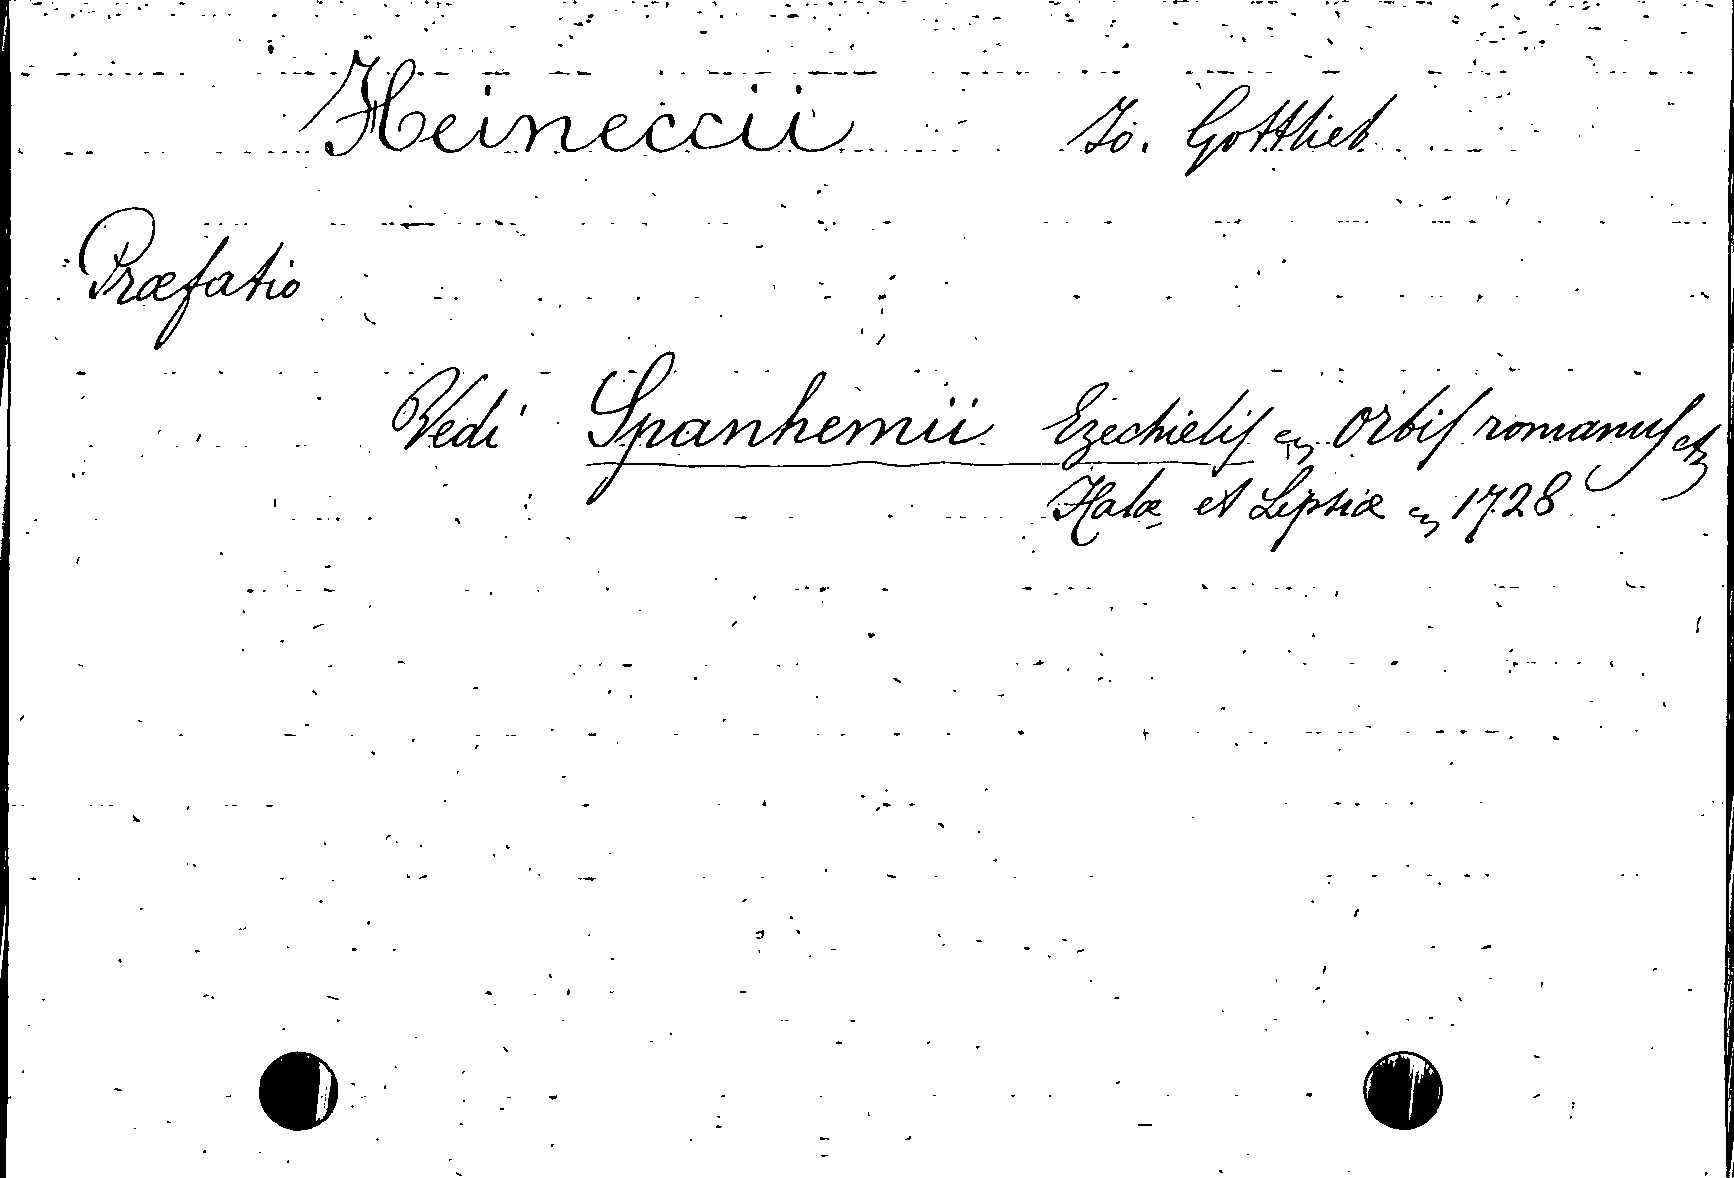 Heineccii Jo. Gottlieb
Præfatio
Vedi Spanhemii Ezechielis Orbis romanus
Halæ et Lipsiæ 1728